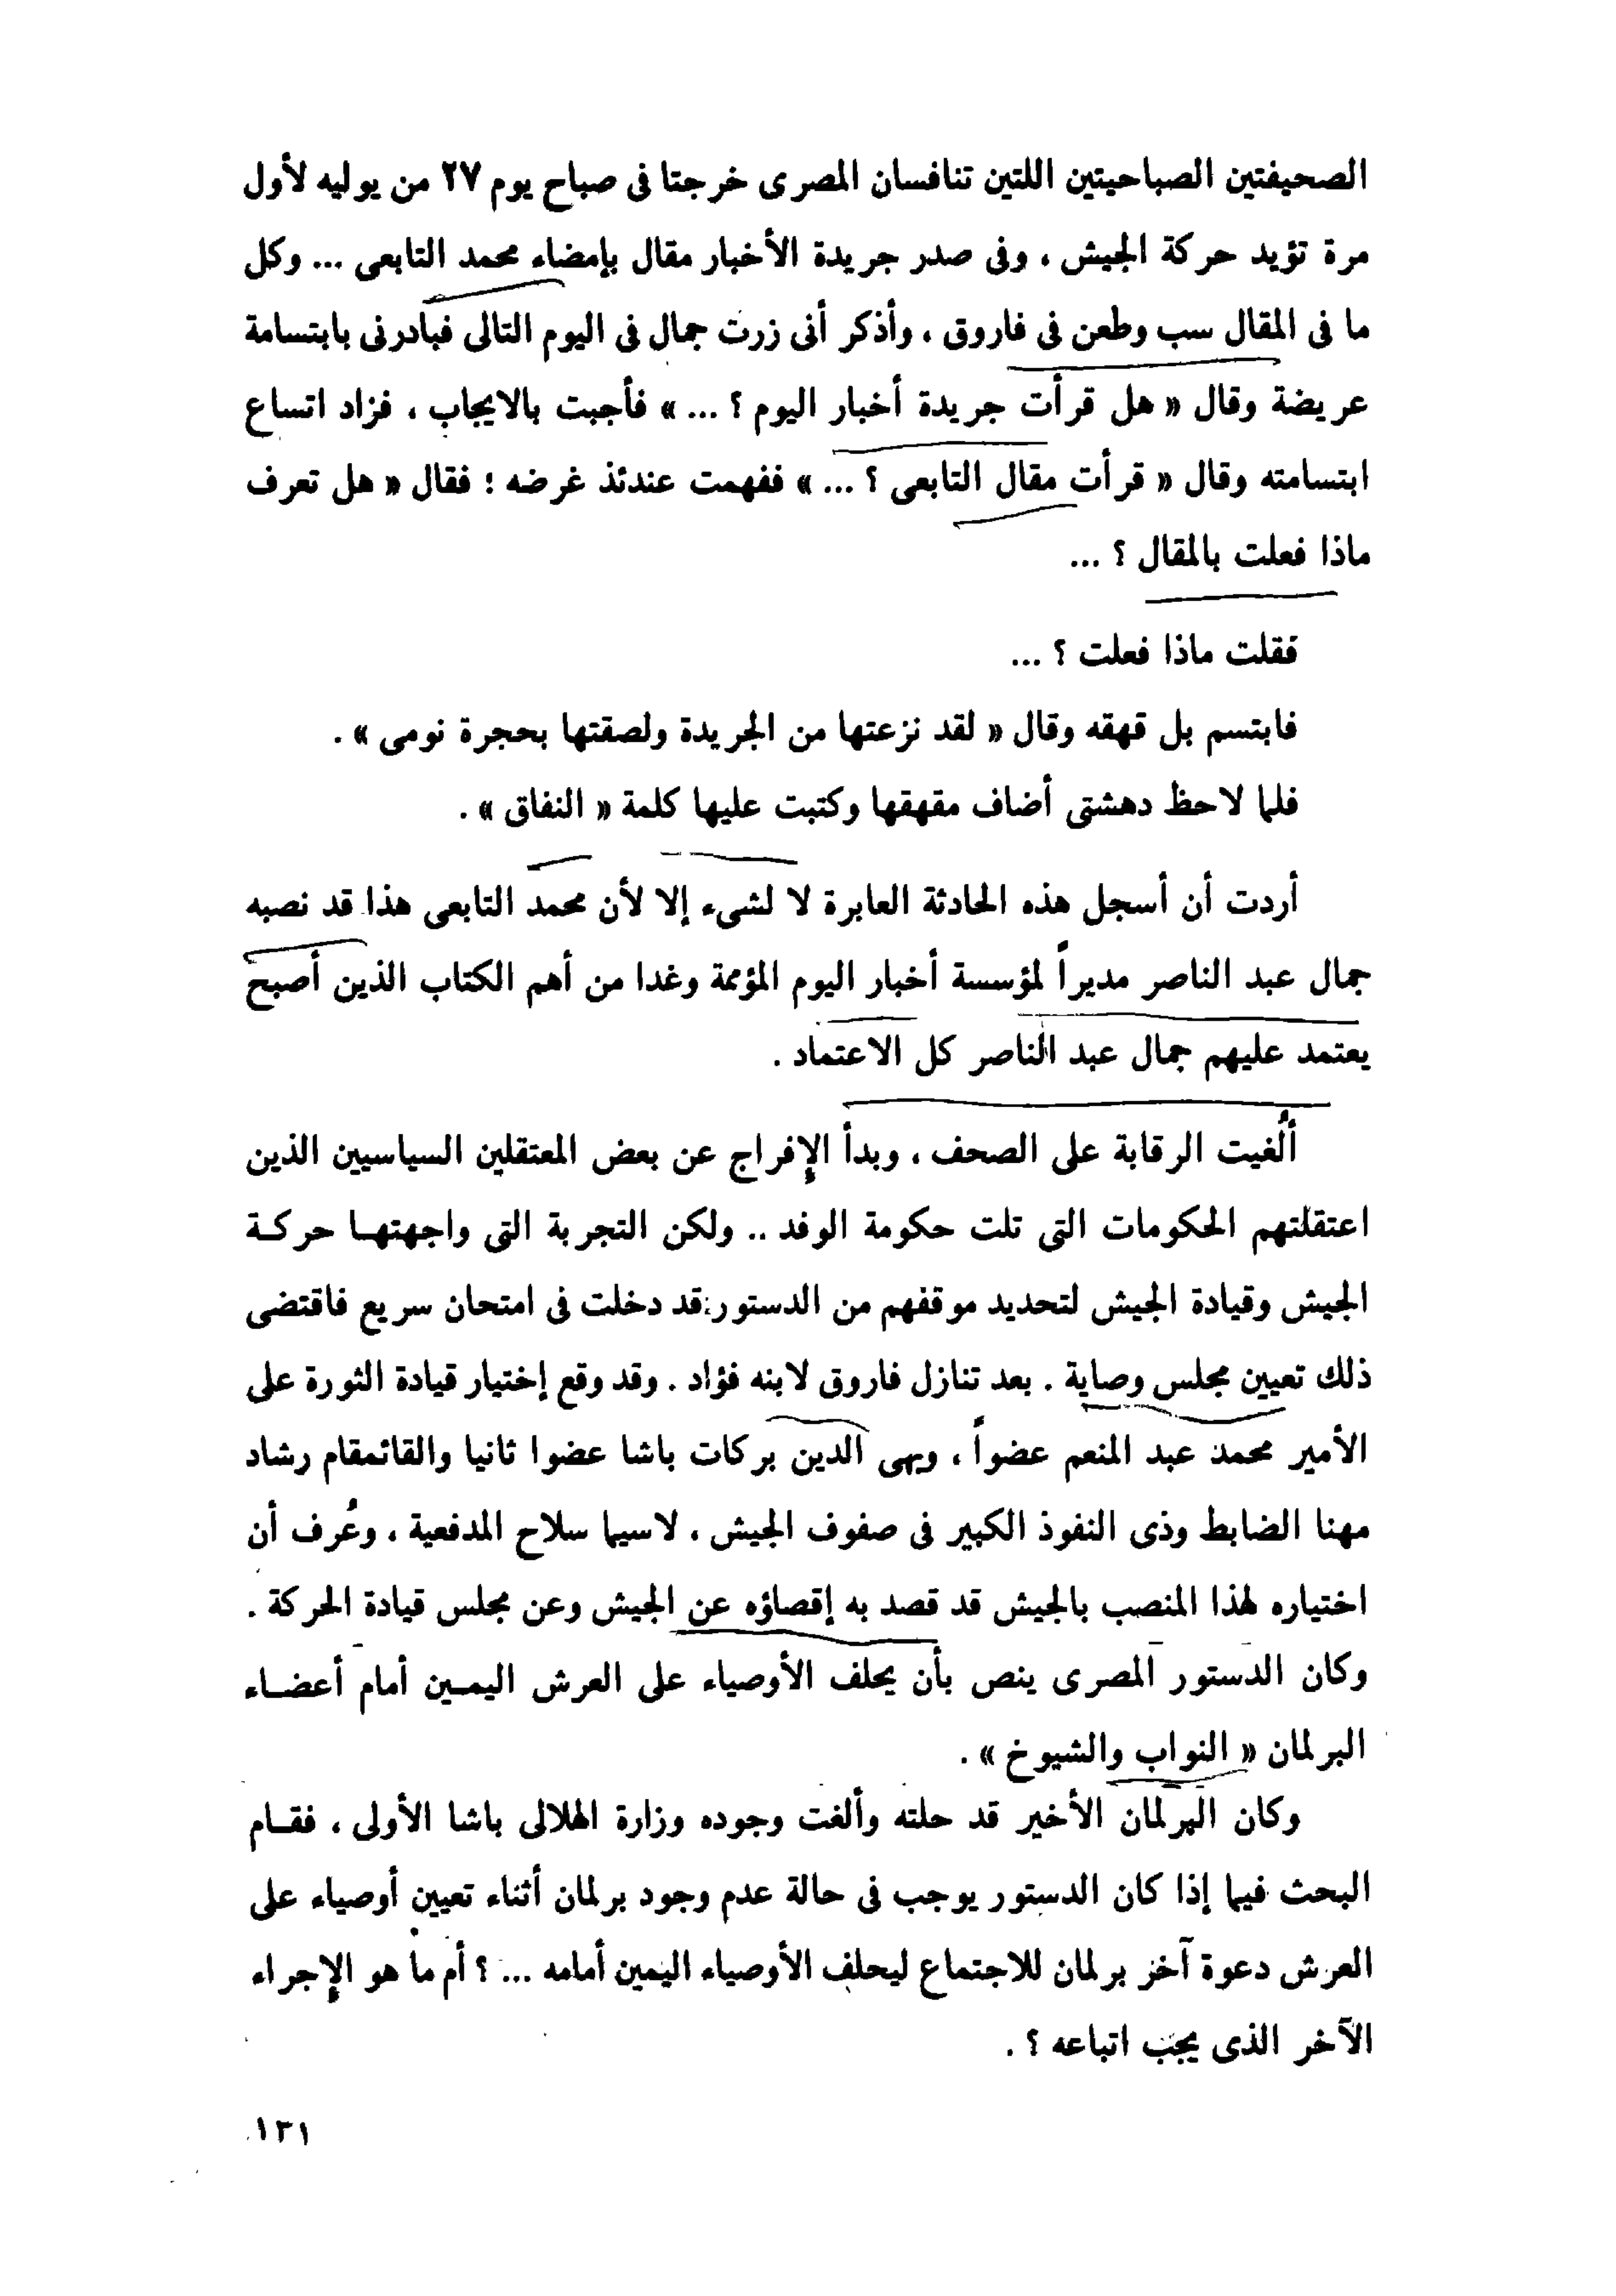 الصحيفتين الصباحيتين اللتين تنافسان المصرى خرجتا فى صباح يوم ٢٧ من يوليه لأول
مرة تؤيد حركة الجيش ، وفى صدر جريدة الأخبار مقال بإمضاء محمد التابعى ... وكل
ما فى المقال سب وطعن فى فاروق ، وأذكر أنى زرت جمال فى اليوم التالى فبادرنى بابتسامة
عريضة وقال « هل قرأت جريدة أخبار اليوم ؟ ... » فأجبت بالايجاب ، فزاد اتساع
ابتسامته وقال « قرأت مقال التابعى ؟ ... » ففهمت عندئذ غرضه ؛ فقال « هل تعرف
ماذا فعلت بالمقال ؟ ...
فقلت ماذا فعلت ؟ ...
فابتسم بل قهقه وقال « لقد نزعتها من الجريدة ولصقتها بحجرة نومى » .
فلما لاحظ دهشتى أضاف مقهقها وكتبت عليها كلمة « النفاق » .
أردت أن أسجل هذه الحادثة العابرة لا لشىء إلا لأن محمد التابعى هذا قد نصبه
جمال عبد الناصر مديراً لمؤسسة أخبار اليوم المؤممة وغدا من أهم الكتاب الذين أصبح
يعتمد عليهم جمال عبد الناصر كل الاعتماد .
ألُغيت الرقابة على الصحف ، وبدأ الإفراج عن بعض المعتقلين السياسيين الذين
اعتقلتهم الحكومات التى تلت حكومة الوفد .. ولكن التجربة التى واجهتهـا حركـة
الجيش وقيادة الجيش لتحديد موقفهم من الدستور قد دخلت فى امتحان سريع فاقتضى
ذلك تعيين مجلس وصاية . بعد تنازل فاروق لابنه فؤاد . وقد وقع إختيار قيادة الثورة على
الأمير محمد عبد المنعم عضواً ، وبهى الدين بركات باشا عضوا ثانيا والقائمقام رشاد
مهنا الضابط وذى النفوذ الكبير فى صفوف الجيش ، لاسيما سلاح المدفعية ، وعُرف أن
اختياره لهذا المنصب بالجيش قد قصد به إقصاؤه عن الجيش وعن مجلس قيادة الحركة .
وكان الدستور المصرى ينص بأن يحلف الأوصياء على العرش اليمـين أمام أعضـاء
البرلمان « النواب والشيوخ » .
وكان البرلمان الأخير قد حلته وألغت وجوده وزارة الهلالى باشا الأولى ، فقـام
البحث فيما إذا كان الدستور يوجب فى حالة عدم وجود برلمان أثناء تعيين أوصياء على
العرش دعوة آخر برلمان للاجتماع ليحلف الأوصياء اليمين أمامه ... ؟ أم ما هو الإجراء
الآخر الذى يجب اتباعه ؟ .
١٣١